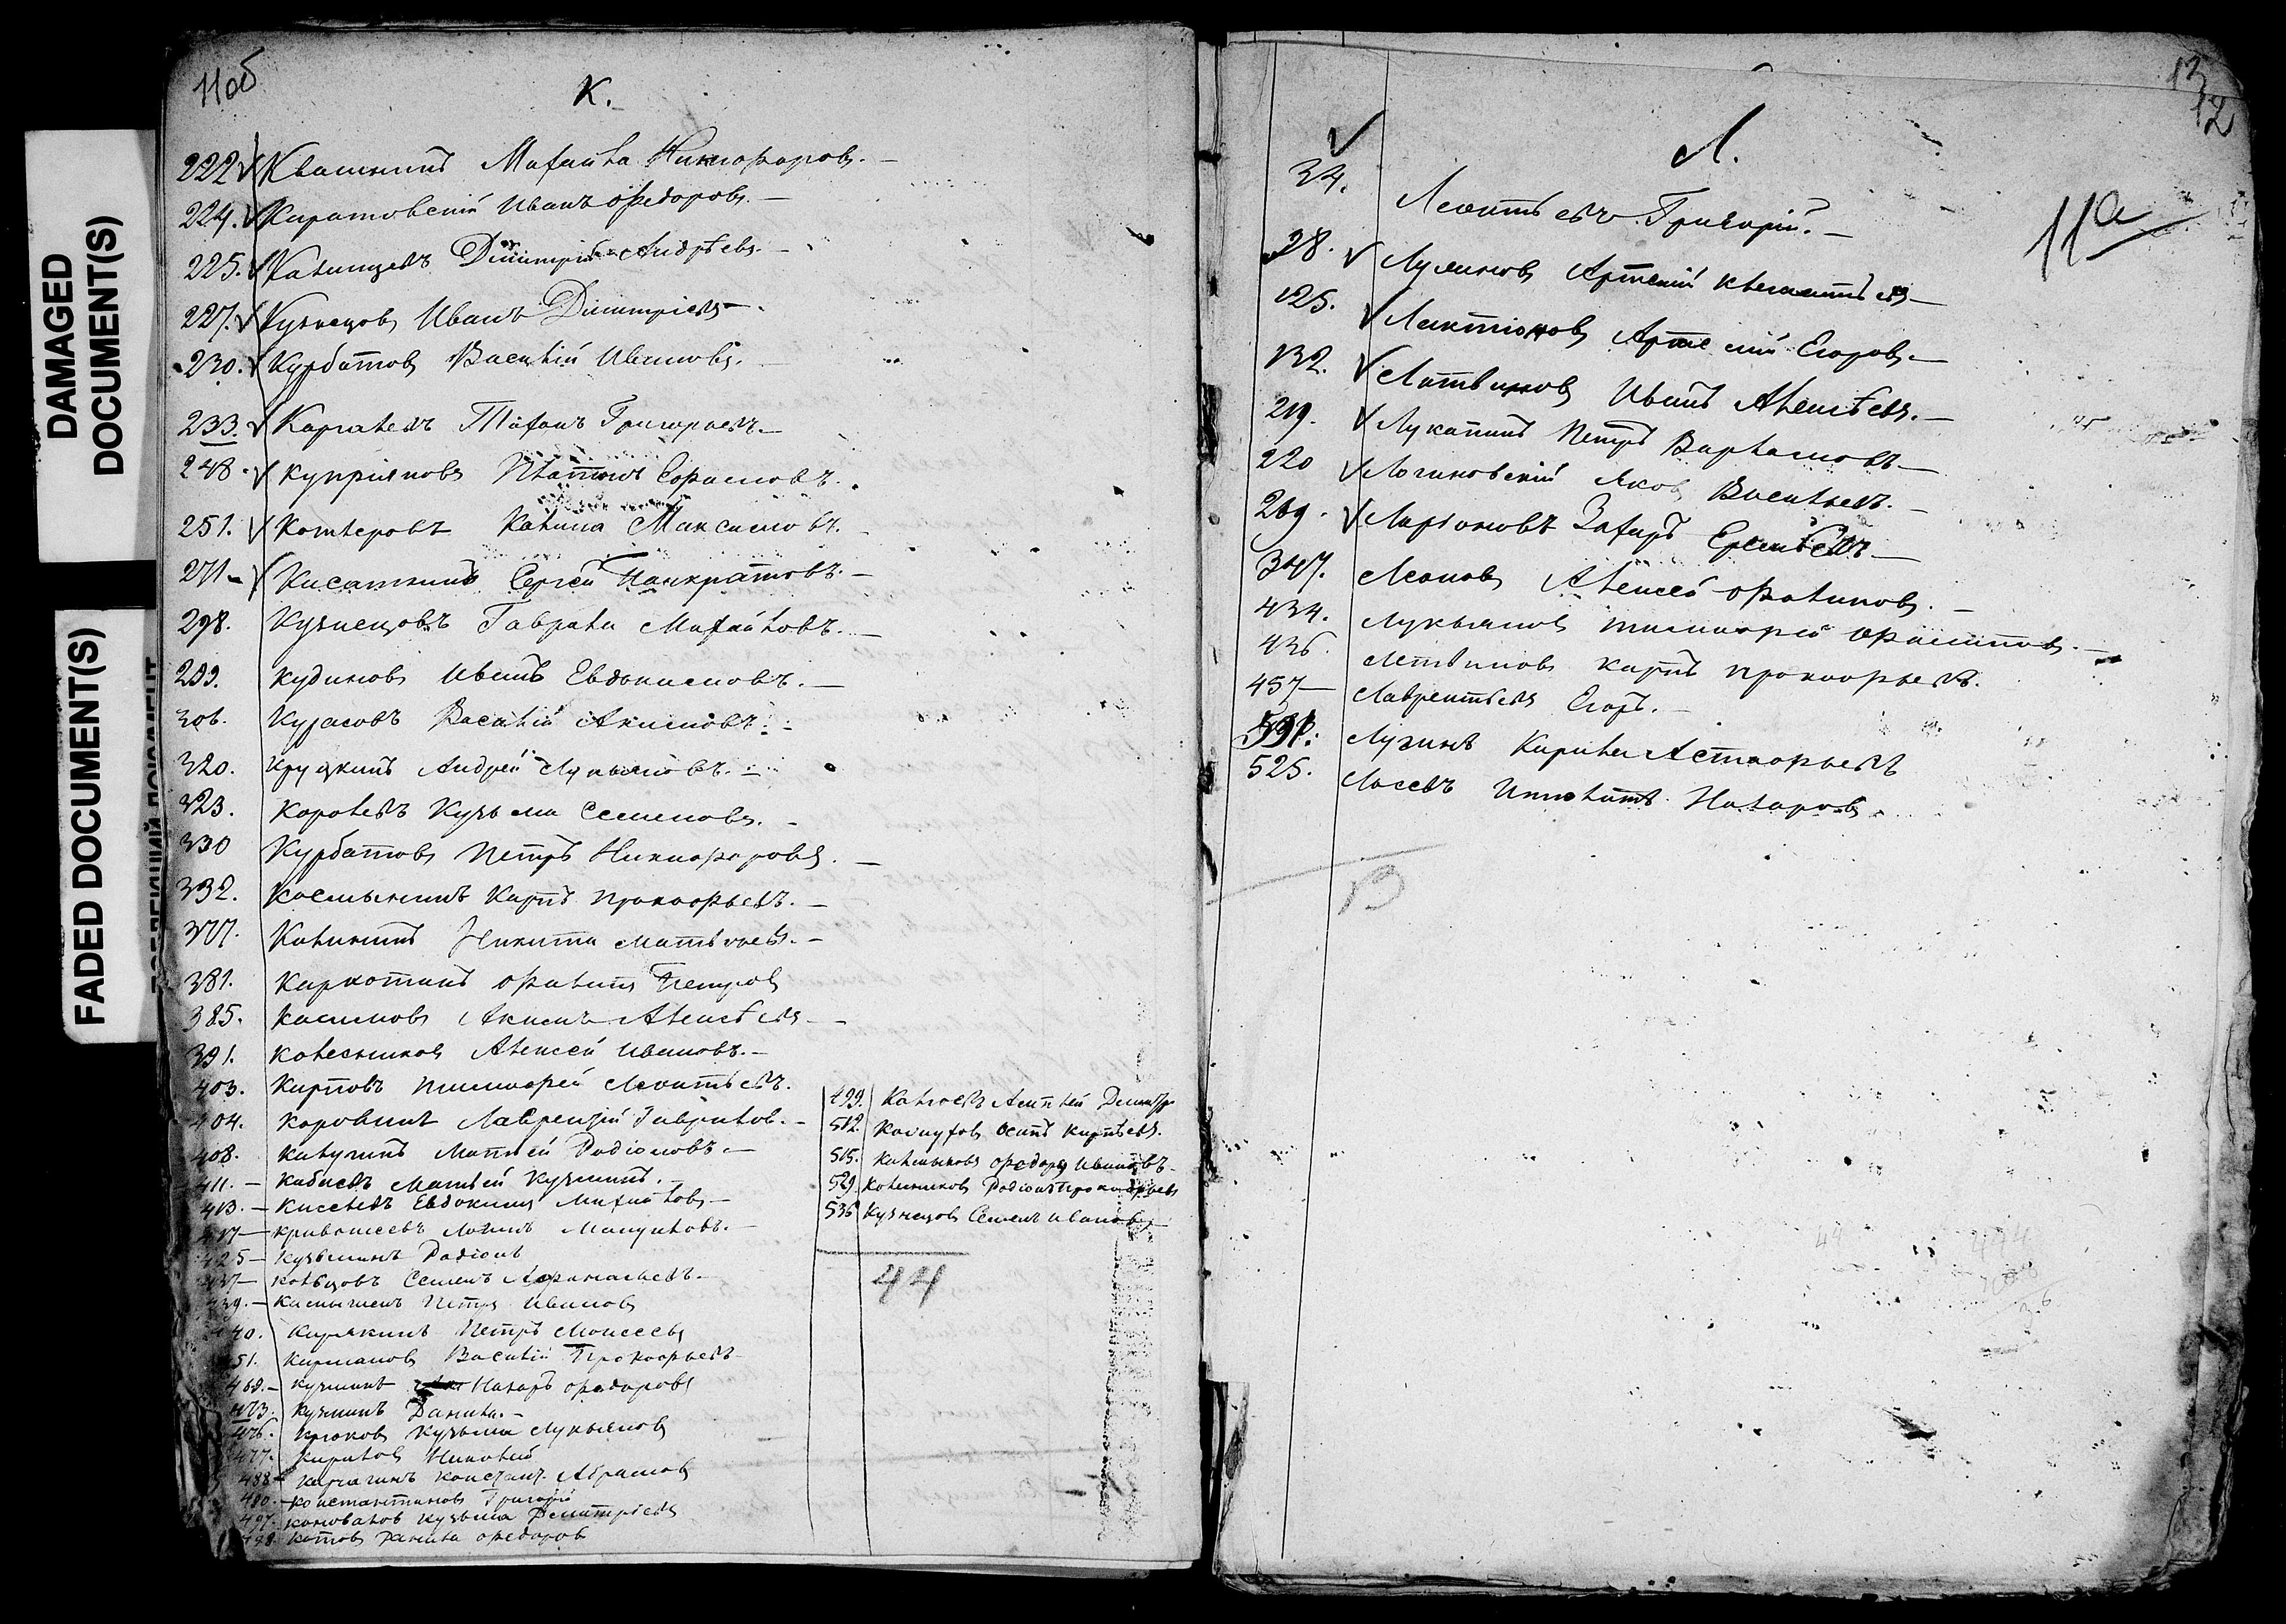 DAMAGED
DOCUMENT(S)
FADED DOCUMENT(S)
11об
К.
222 Квашнинъ Михаила Никифоровъ.
224. Киратовскій Иванъ Федоровъ.
225. Калинцевъ Димитрій Андрѣевъ.
227. Кузнецовъ Иванъ Димитріевъ
230. Курбатовъ Василій Ивановъ.
233. Каргалевъ Тифонъ Григорьевъ
248. Купріяновъ Платонъ Ефимовъ.
251. Котлеровъ Калина Максимовъ.
271 Кисаткинъ Сергѣй Панкратовъ.
298. Кузнецовъ Гаврила Михайловъ.
299. Кудиновъ Иванъ Евдокимовъ.
306. Курасовъ Василій Акимовъ.
320. Круцкинъ Андрей Лукьяновъ.
323. Королевъ Кузьма Семеновъ.
330 Курбатовъ Петръ Никифоровъ.
332. Космынинъ Карпъ Прокофьевъ.
377. Калининъ Никита Матвѣевъ.
381. Каркотинъ Филипъ Петровъ
385. Касимовъ Акимъ Алексѣевъ
391. Колесниковъ Алексѣй Ивановъ.
403. Карповъ Тимофей Леонтьевъ.
404. Коровинъ Лаврентій Гавриловъ.
408. Калугинъ Матвей Родіоновъ
411. Кабаевъ Матвей Кузминъ.
413. Киселевъ Евдокимъ Михайловъ
417 Кривошеевъ Логинъ Мануиловъ.
425 Кузьминъ Родіонъ
437 Кольцовъ Семенъ Афанасьевъ.
439. Петръ Ивановъ
440. Кирякинъ Петръ Моисеевъ
451. Кирпановъ Василій Прокофьевъ
468. Кузминъ Назаръ Федоровъ
473. Кузминъ Данила.
476. Крюковъ Кузьма Лукьяновъ
477. Кириловъ
488 Карчагинъ Констант. Абрамовъ
490. Константиновъ Григорій
497. Коноваловъ Кузьма Дмитріевъ
498. Котовъ Данила Федоровъ
499. Калмыкъ Дмитр
512. Осипъ Карпѣевъ.
515. Калмыковъ Федоръ Ивановъ
529. Колесниковъ Родіонъ Прокофьевъ
536 Кузнецовъ Семенъ Ивановъ
44
13
12
Л.
11а
34. Леонтьевъ Григорій.
28. Лукиновъ Артемій Клементьевъ
125. Лактіоновъ Артемій Егоровъ
132. Литвиновъ Иванъ Алексѣевъ.
219. Лукапинъ Петръ Варламовъ
220 Логиновскій Яковъ Васильевъ.
269. Ларіоновъ Захаръ Еремѣевъ
347. Леоновъ Алексей Филиповъ.
434. Лукьяновъ Тимофей Филиповъ.
436. Литвиновъ Карпъ Прокофьевъ.
457 Лаврентьевъ Егоръ.
591. Лузинъ Кирила Астафьевъ
525. Лосевъ Иполитъ Назаровъ
13
44